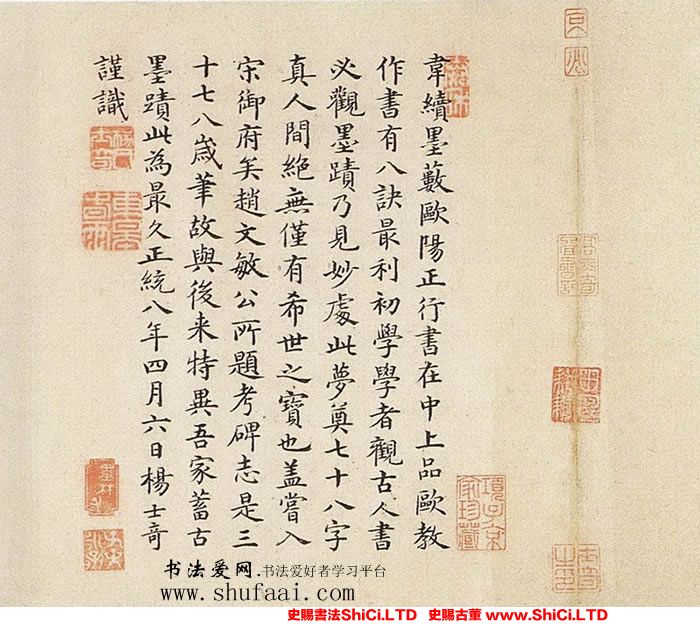 韋續墨藪歐陽正行書在中上品歐教
作書有八訣最利初學學者觀古人書
必觀墨蹟乃見妙處此夢奠七十八字
真人間絶無僅有希世之寶也盖嘗入
宋御府矣趙文敏公所題考碑志是三
十七八歲筆故與後来特異吾家蓄古
墨蹟此為最久正統八年四月六日楊士竒
謹識
項子京
家珍藏
书法爱网.书法爱好者学习平台
www.shufaai.com
史賜書法ShiCi.LTD 史賜古董 www.ShiCi.LTD